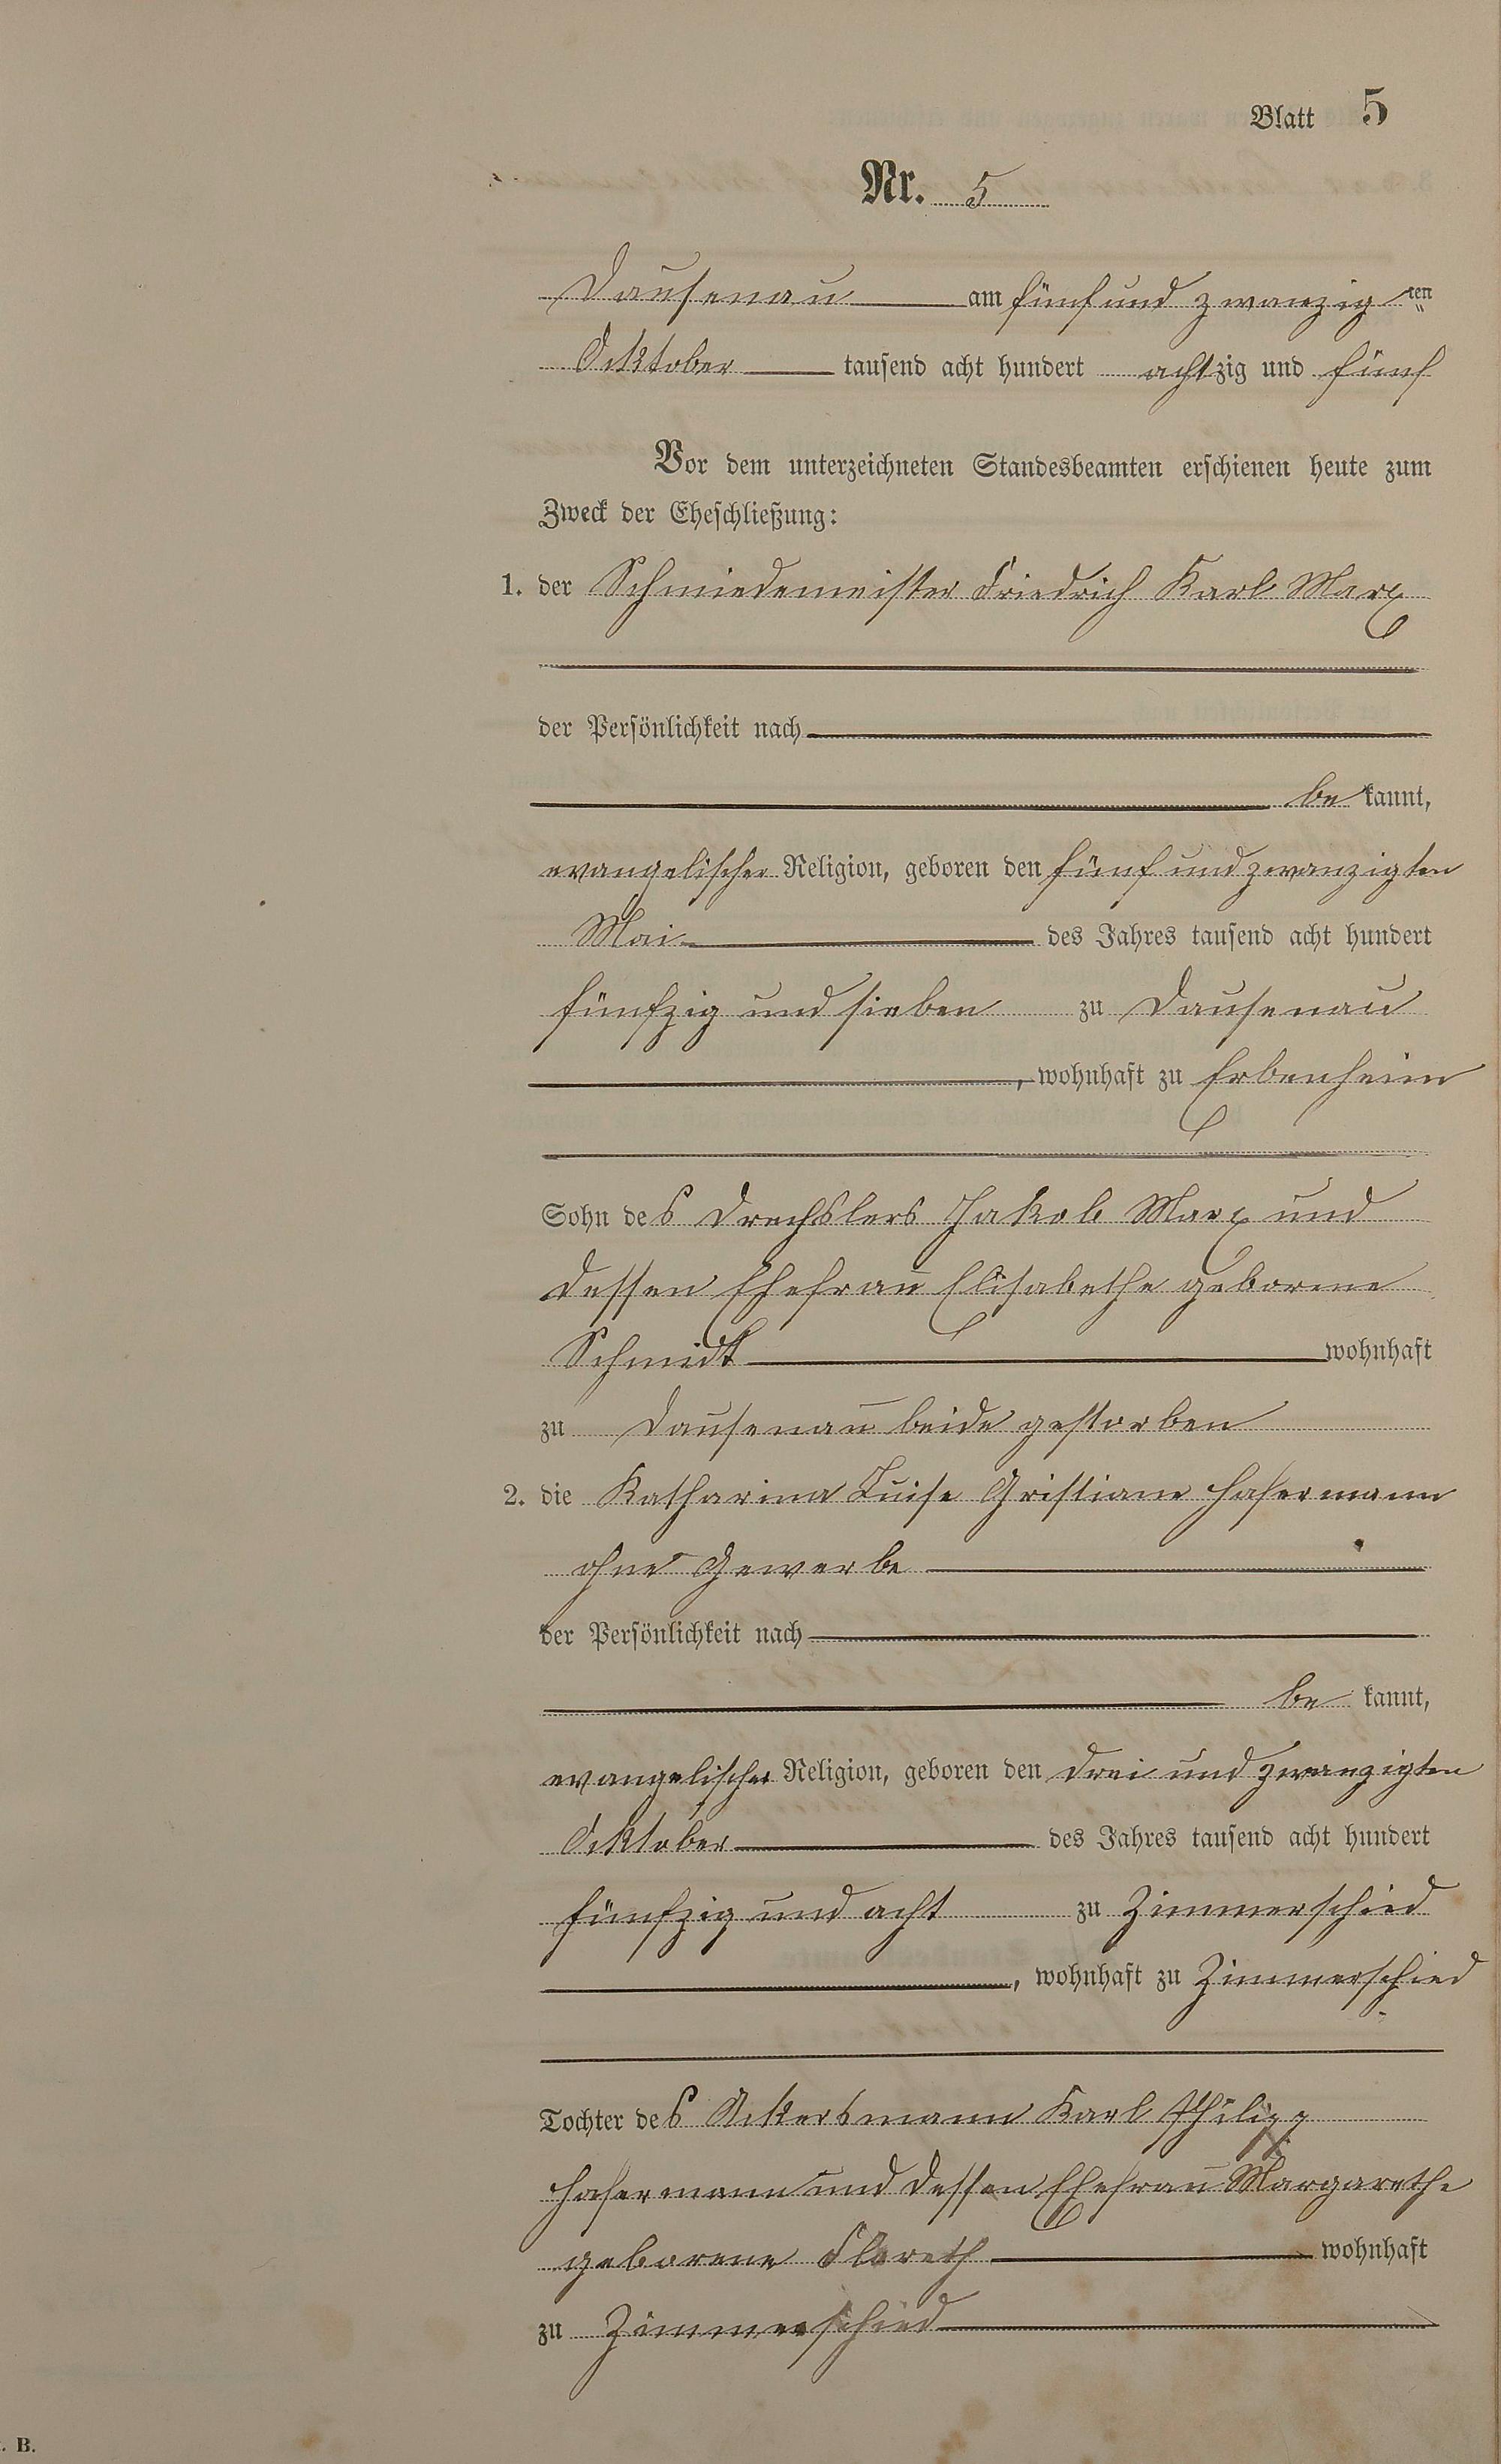 Blatt 5
Nr. 5
Dausenau am fünfund zwanzig ten
Ocktober tausend acht hundert achtzig und fünf
Vor dem unterzeichneten Standesbeamten erschienen heute zum
Zweck der Eheschließung:
1. der Schmiedemeister Friedrich Karl Marx
der Persönlichkeit nach
be kannt,
evangelischer Religion, geboren den fünf und zwanzigten
Mai des Jahres tausend acht hundert
fünfzig und sieben zu Dausenau
, wohnhaft zu Erbenheim
Sohn des Drechslers Jakob Marx und
dessen Ehefrau Elisabethe geborene
Schmidt wohnhaft
zu Dausenau beide gestorben
2. die Katharina Luise Gristiane Hasermann
ohne Gewerbe
der Persönlichkeit nach
be kannt,
evangelischer Religion, geboren den drei und zwanzigten
Ocktober des Jahres tausend acht hundert
fünfzig und acht zu Zimmerschied
, wohnhaft zu Zimmerschied
Tochter des Ackersmann Karl Philipp
Hasermann und dessen Ehefrau Margarethe
geborene wohnhaft
zu Zimmerschied
. B.